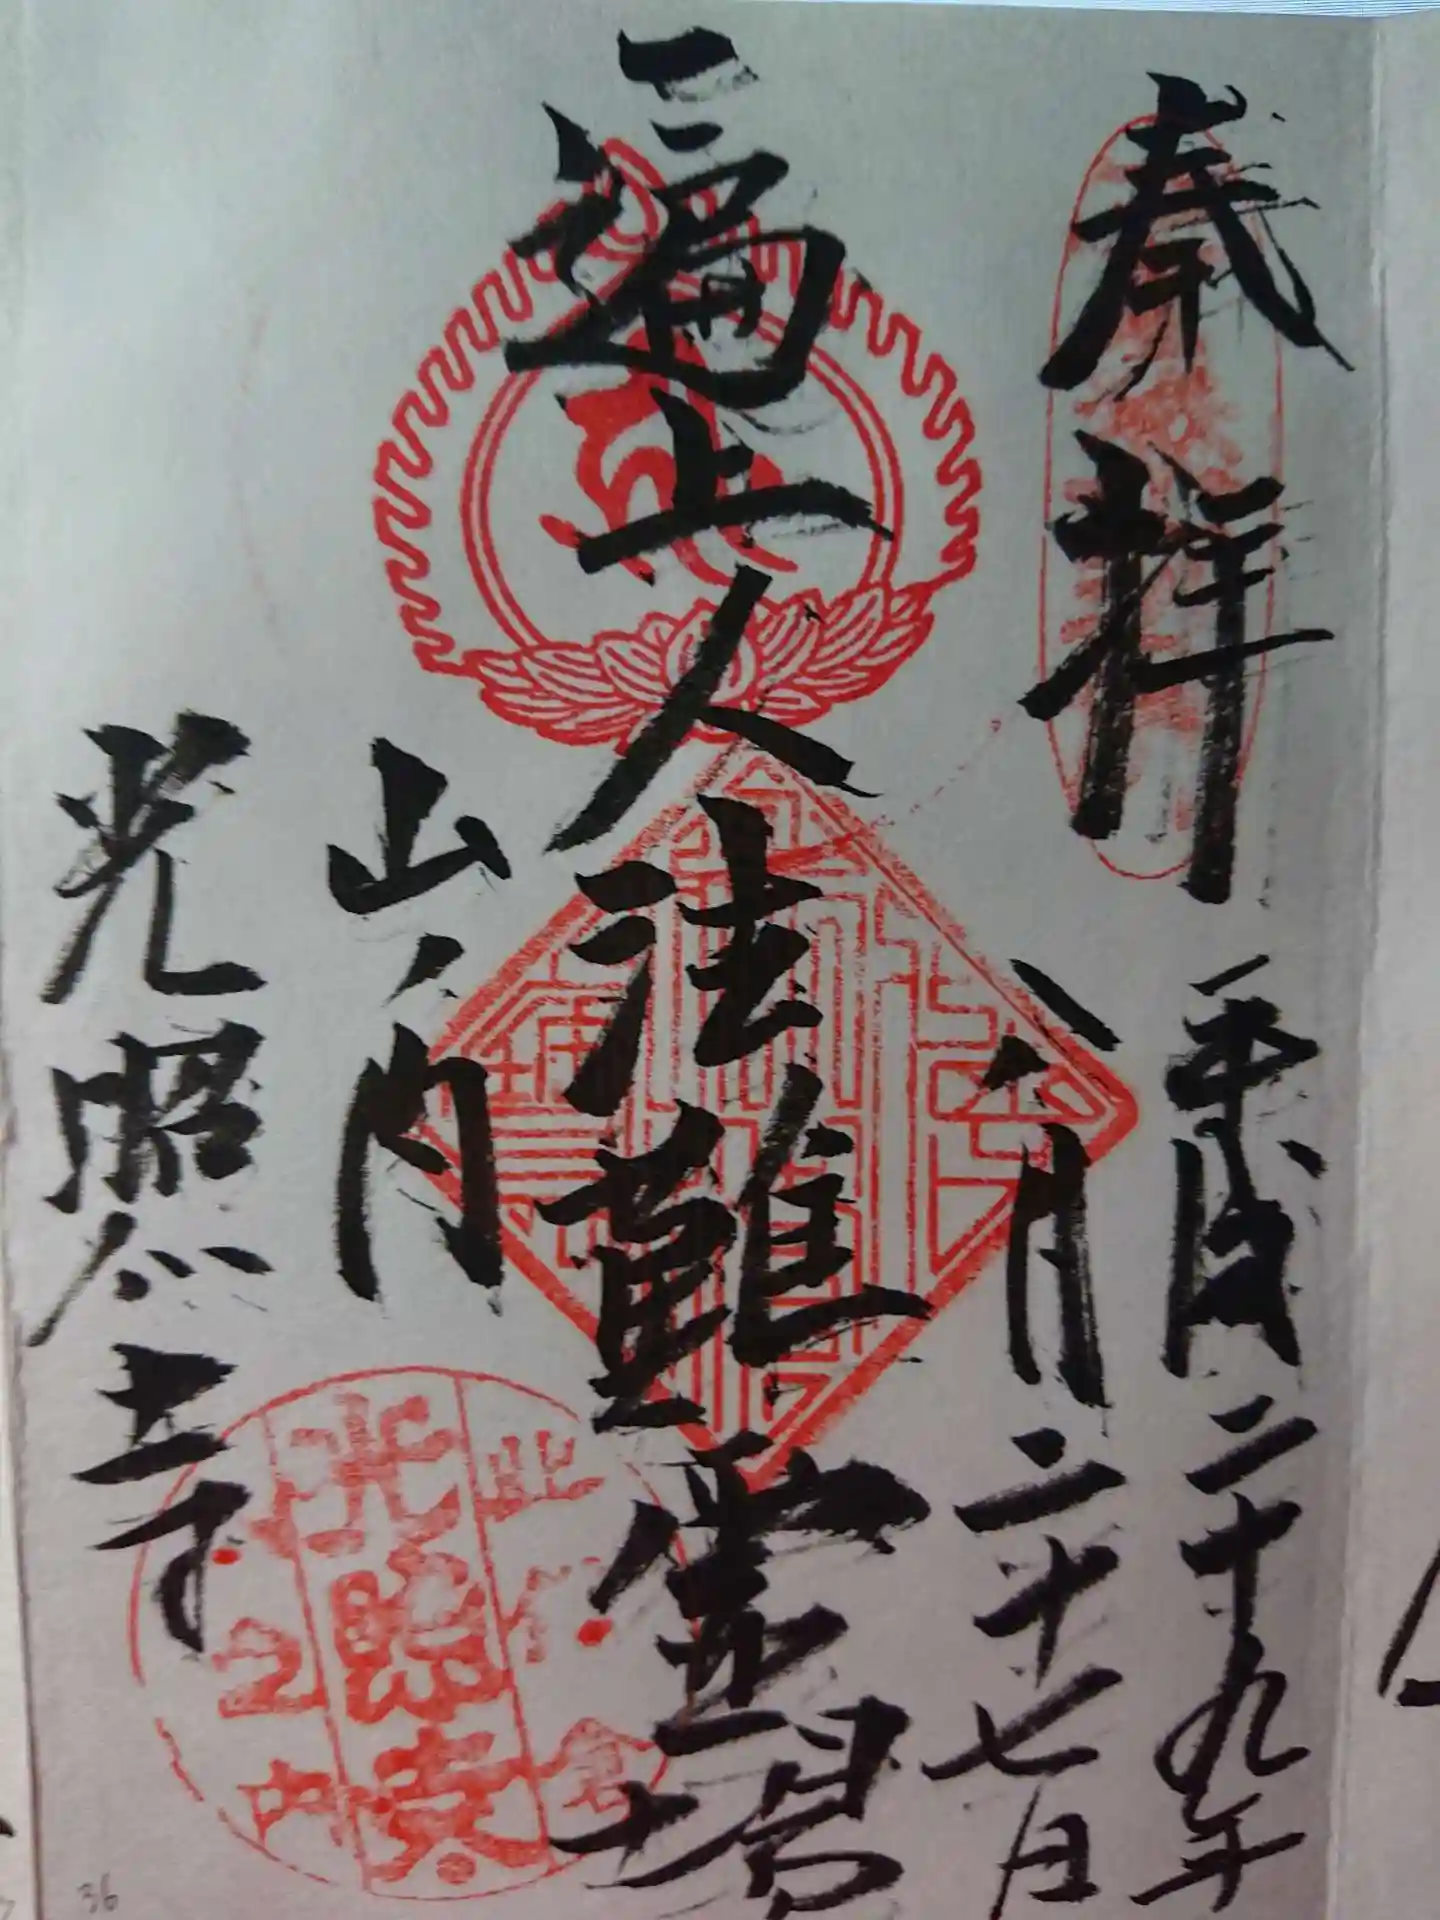 奉拝
平成二十九年
八月二十七日
一遍上人法難霊場
山ノ内
光照寺
光照寺
36